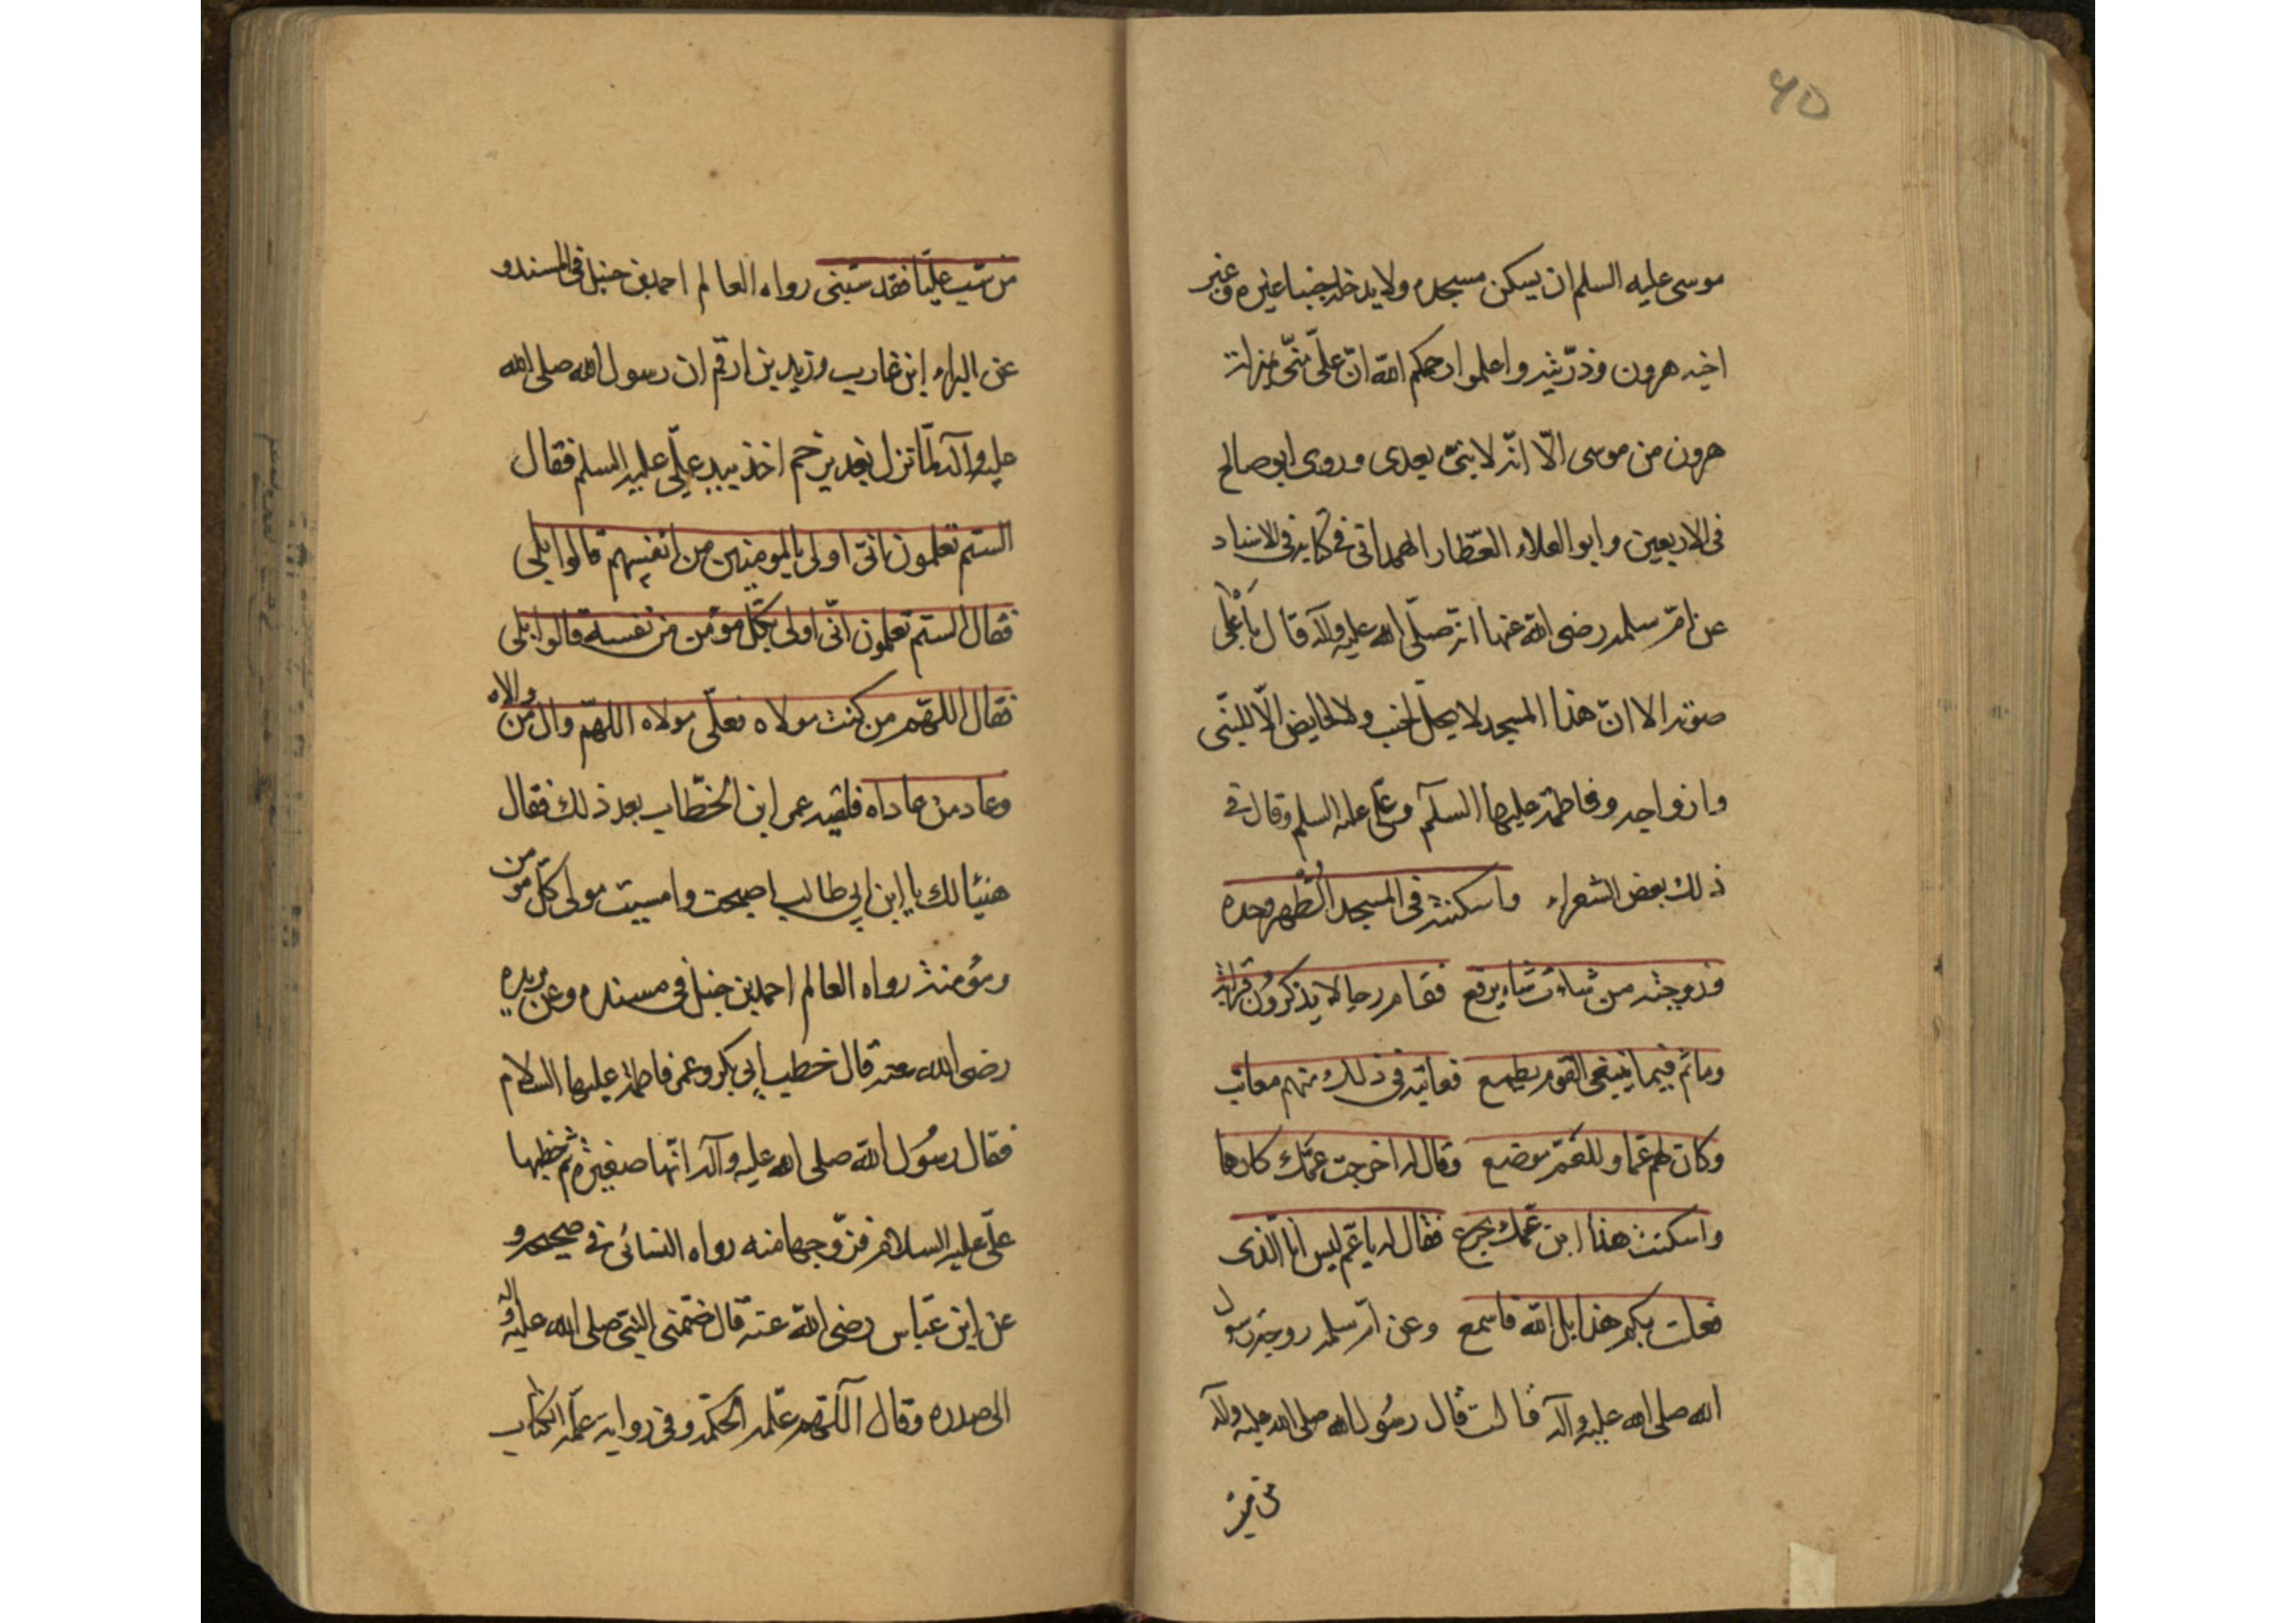 ٤٥
موسى عليه السلم ان يسكن مسجده ولا يدخله جنبا غيره وغير
اخيه هرون وذريته واعلموا رحمكم الله ان على منى بمنزلة
هرون من موسى الا انه لا نبى بعدى وروى ابو صالح
فى الاربعين وابو العلاء العطار الهمدانى فى كتابه فى الاسناد
عن ام سلمه رضى الله عنها انه صلى الله عليه وآله قال با على
صوته الا ان هذا المسجد لا يحل لجنب ولا لحايض الا للنبى
وازواجه وفاطمة عليها السلم وعلى عليه السلم وقال فى
ذلك بعض الشعراء واسكنته فى المسجد الطهر وحده
وزوجته من شاء يرفع فقام رجال يذكرون قرابة
وما ثم فيما ينبغى القوم يطمع فعاتبه فى ذلك منهم معاتب
وكان لهم عما وللعم موضع وقال له اخرجت عمك كارها
واسكنت هذا ابن عمك يجزع فقال له يا عم ليس انا الذى
فعلت بكم هذا بل الله فاسمع وعن ام سلمه زوجة رسول
الله صلى الله عليه وآله قالت قال رسول الله صلى الله عليه وآله
من سب
من سب عليا فقد سبنى رواه العالم احمد بن حنبل فى المسند و
عن البراء ابن عازب وزيد بن ارقم ان رسول الله صلى الله
عليه وآله لما نزل بغدير خم اخذ بيد على عليه السلم فقال
الستم تعلمون بانى اولى بالمومنين من انفسهم قالوا بلى
فقال الستم تعلمون انى اولى بكل مؤمن من نفسه قالوا بلى
فقال اللهم من كنت مولاه فعلى مولاه اللهم وال من والاه
وعاد من عاداه فلقيه عمر ابن الخطاب بعد ذلك فقال
هنيئا لك يا ابن ابى طالب اصبحت وامسيت مولى كل مومن
ومؤمنة رواه العالم احمد بن حنبل فى مسنده وعن بريده
رضى الله عنه قال خطب ابى بكر وعمر فاطمة عليها السلام
فقال رسول الله صلى الله عليه وآله انها صغيرة ثم خطبها
على عليه السلام فزوجها منه رواه النسائى فى صحيحه و
عن ابن عباس رضى الله عنه قال ضمنى النبى صلى الله عليه وآله
الى صدره وقال اللهم علمه الحكمة وفى رواية علمه الكتاب